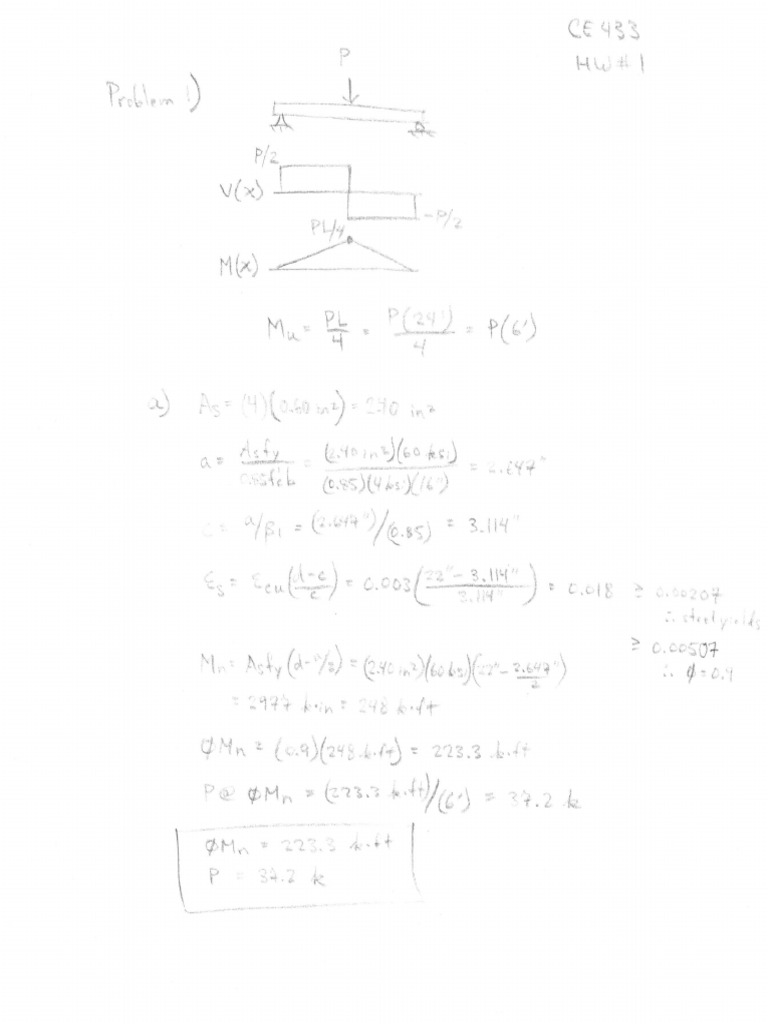 CE 433
HW #1
Problem 1)
P
P/2
V(x)
-P/2
PL/4
M(x)
Mu = PL/4 = P(24')/4 = P(6')
a) As = (4)(0.60 in²) = 2.40 in²
a = Asfy/0.85f'cb = (2.40 in²)(60 ksi)/(0.85)(4 ksi)(16") = 2.647"
c = a/β1 = (2.647")/(0.85) = 3.114"
εs = εcu(d-c/c) = 0.003(22"-3.114"/3.114") = 0.018 ≥ 0.00207
∴ steel yields
≥ 0.00507
∴ ϕ = 0.9
Mn = Asfy(d-a/2) = (2.40 in²)(60 ksi)(22"-2.647"/2)
= 2977 k·in = 248 k·ft
ϕMn = (0.9)(248 k·ft) = 223.3 k·ft
P @ ϕMn = (223.3 k·ft)/(6') = 37.2 k
ϕMn = 223.3 k·ft
P = 37.2 k